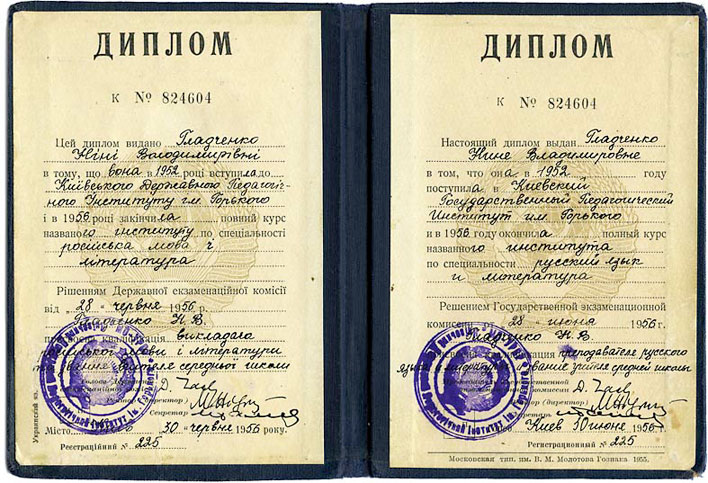 ДИПЛОМ
К № 824604
Цей диплом видано Гладченко
Ніні Володимирівні
в тому, що вона в 1952 році вступила до
Київського Державного Педагогіч-
ного Інституту ім. Горького
і в 1956 році закінчила повний курс
названого інституту по спеціальності
російська мова і
література
Рішенням Державної екзаменаційної комісії
від 28 червня 1956 р.
Гладченко Н. В.
кваліфікація викладача
мови і літератури
середньої школи
Секретар
Місто 30 червня 1956 року.
Реєстраційний № 225
Украинский яз.
ДИПЛОМ
К № 824604
Настоящий диплом выдан Гладченко
Нине Владимировне
в том, что она в 1952 году
поступила в Киевский
Государственный Педагогический
Институт им. Горького
и в 1956 году окончила полный курс
названного института
по специальности русский язык
и литература
Решением Государственной экзаменационной
комиссии 28 июня 1956 г.
Гладченко Н. В.
преподавателя русского
языка и звание учителя средней школы
Секретарь
Киев 30 июня 1956 г.
Регистрационный № 225
Московская тип. им. В. М. Молотова Гознака 1955.